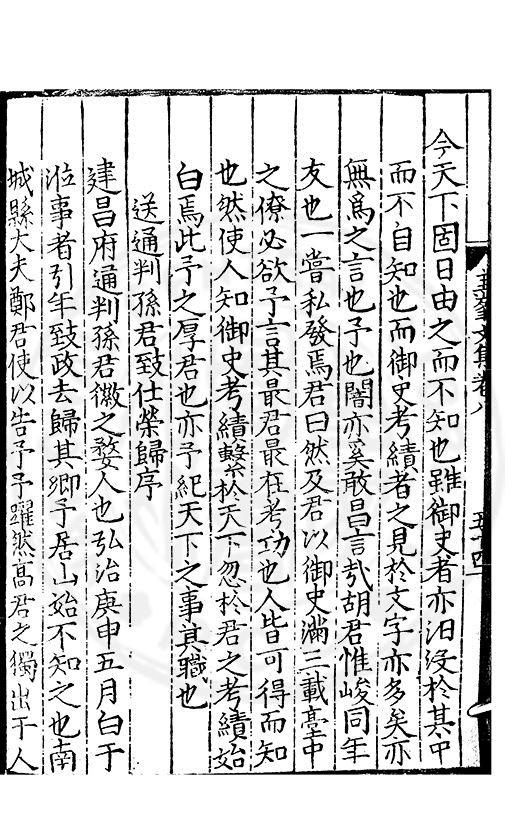 今天下固日由之而不知也雖御史者亦汨沒於其中
而不自知也而御史考績者之見於文字亦多矣亦
無為之言也予也闇亦奚敢昌言哉胡君惟峻同年
友也一嘗私發焉君曰然及君以御史滿三載臺中
之僚必欲予言其最君最在考功也人皆可得而知
也然使人知御史考績繫於天下忽於君之考績始
白焉此予之厚君也亦予紀天下之事其職也
送通判孫君致仕榮歸序
建昌府通判孫君徽之婺人也弘治庚申五月白于
涖事者引年致政去歸其鄉予居山始不知之也南
城縣大夫鄭君使以告予予躍然高君之獨出于人
文集卷八
五十四